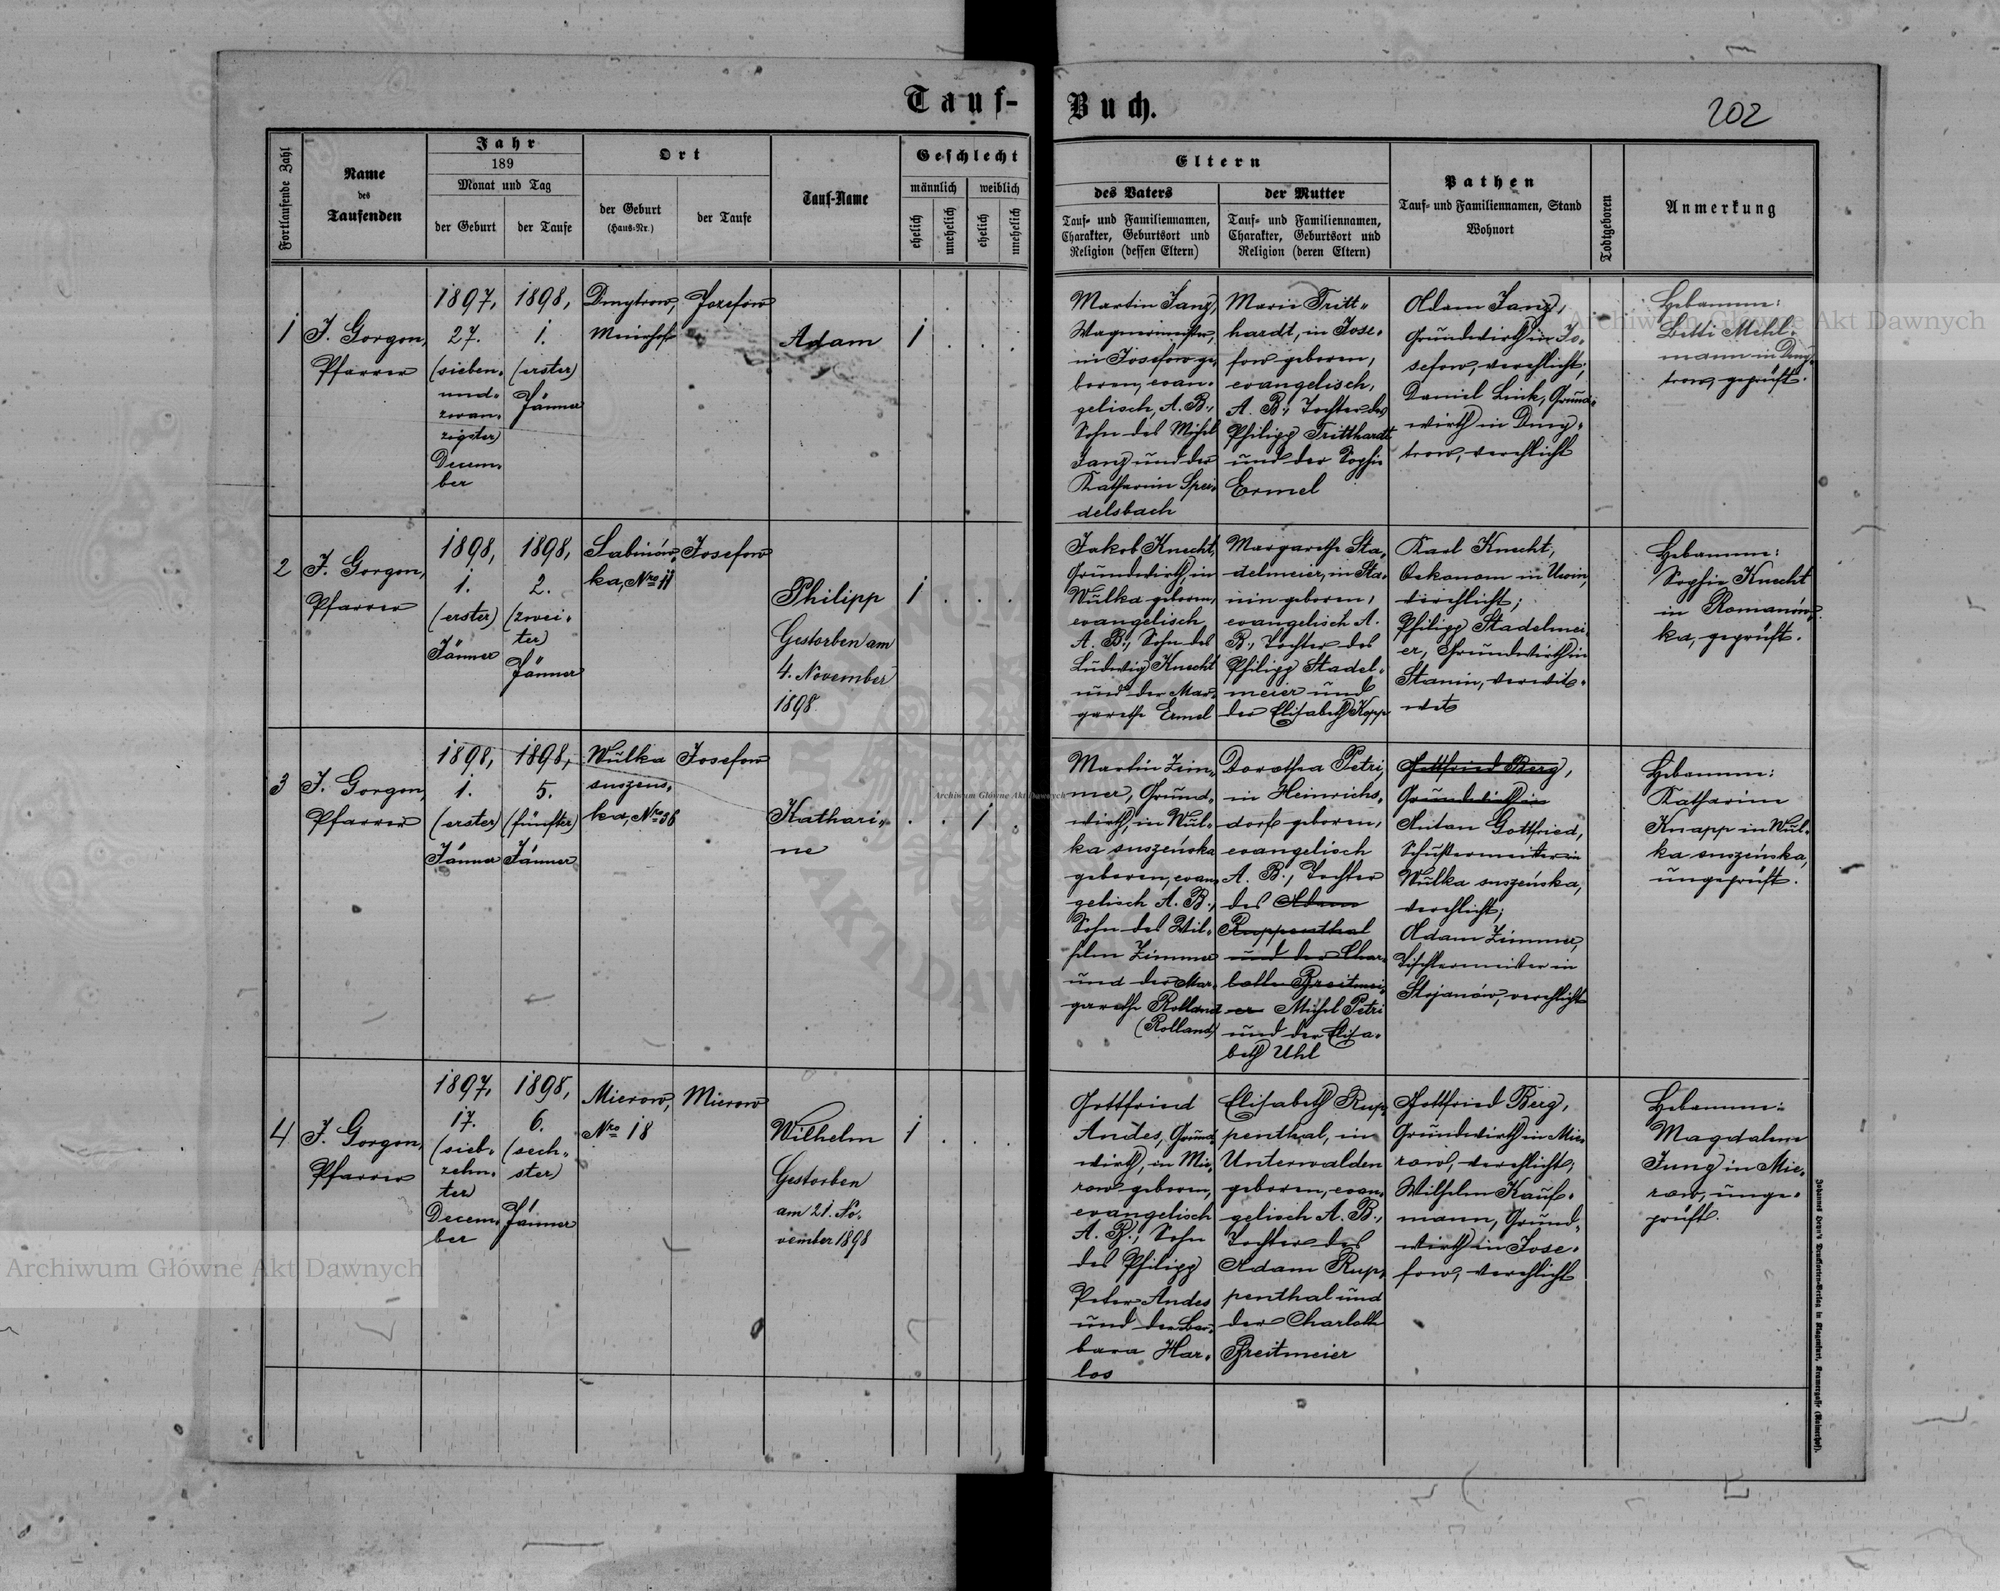 Tauf-
Buch.
202
Fortlaufende Zahl
Name
des
Taufenden
Jahr
189
Monat und Tag
der Geburt
der Taufe
Ort
der Geburt
(Haus-Nr.)
der Taufe
Tauf-Name
Geschlecht
männlich
weiblich
ehelich
unehelich
ehelich
unehelich
Eltern
des Vaters
Tauf- und Familiennamen,
Charakter, Geburtsort und
Religion (dessen Eltern)
der Mutter
Tauf- und Familiennamen,
Charakter, Geburtsort und
Religion (deren Eltern)
Pathen
Tauf- und Familiennamen, Stand
Wohnort
Todtgeboren
Anmerkung
1
J. Gorgon,
Pfarrer
1897,
27.
(sieben-
und-
zwan-
zigster)
Decem-
ber
1898,
1.
(erster)
Jänner
Dmytrow,
Meierhof
Josefow
Adam
1
Martin Janz,
Wagnermeister,
in Josefow ge-
boren, evan-
gelisch, A. B.,
Sohn des Michel
Janz und der
Katharin Spei-
delsbach
Marie Tritt-
hardt, in Jose-
fow geboren,
evangelisch,
A. B., Tochter des
Philipp Tritthardt
und der Sophie
Ermel
Adam Janz,
Grundwirth in Jo-
sefow, verehlicht;
Daniel Link, Grund-
wirth in Dmy-
trow, verehlicht
Hebamme:
Betti Mehl-
mann in Dmy-
trow, geprüft.
2
J. Gorgon,
Pfarrer
1898,
1.
(erster)
Jänner
1898,
2.
(zwei-
ter)
Jänner
Sabinów-
ka, Nro 11
Josefow
Philipp
Gestorben am
4. November
1898
1
Jakob Knecht,
Grundwirth, in
Wulka geboren,
evangelisch
A. B., Sohn des
Ludwig Knecht
und der Mar-
garethe Ermel
Margarethe Sta-
delmeier, in Sta-
nin geboren,
evangelisch A.
B., Tochter des
Philipp Stadel-
meier und
der Elisabeth Kopp
Karl Knecht,
Oekonom in Uwin,
verehlicht;
Philipp Stadelmei-
er, Grundwirth in
Stanin, verwit-
wet
Hebamme:
Sophie Knecht
in Romanów-
ka, geprüft.
3
J. Gorgon,
Pfarrer
1898,
1.
(erster)
Jänner
1898,
5.
(fünfter)
Jänner
Wulka
suszens-
ka, Nro 36
Josefow
Kathari-
ne
1
Martin Zim-
mer, Grund-
wirth, in Wul-
ka suszeńska
geboren, evan-
gelisch A. B.,
Sohn des Wil-
helm Zimmer
und der Mar-
garethe Rolland
(Rolland)
Dorothea Petri,
in Heinrichs-
dorf geboren,
evangelisch
A. B., Tochter
des Adam
Ruppenthal
und der Char-
lotte Breitmei-
er Michel Petri
und der Elisa-
beth Uhl
Gottfried Berg,
Grundwirth in
Anton Gottfried,
Schustermeister in
Wulka suszeńska,
verehlicht;
Adam Zimmer,
Tischlermeister in
Stojanów, verehlicht
Hebamme:
Katharine
Knapp in Wul-
ka suszeńska,
ungeprüft.
4
J. Gorgon,
Pfarrer
1897,
17.
(sieb-
zehn-
ter)
Decem-
ber
1898,
6.
(sech-
ster)
Jänner
Mierow,
Nro 18
Mierow
Wilhelm
Gestorben
am 21. No-
vember 1898
1
Gottfried
Andes, Grund-
wirth, in Mie-
row geboren,
evangelisch
A. B., Sohn
des Philipp
Peter Andes
und der Bar-
bara Har-
los
Elisabeth Rup-
penthal, in
Unterwalden
geboren, evan-
gelisch A. B.,
Tochter des
Adam Rup-
penthal und
der Charlotte
Breitmeier
Gottfried Berg,
Grundwirth in Mie-
row, verehlicht;
Wilhelm Kauf-
mann, Grund-
wirth in Jose-
fow, verehlicht
Hebamme:
Magdalene
Jung in Mie-
row, unge-
prüft.
Archiwum Główne Akt Dawnych
Archiwum Główne Akt Dawnych
Archiwum Główne Akt Dawnych